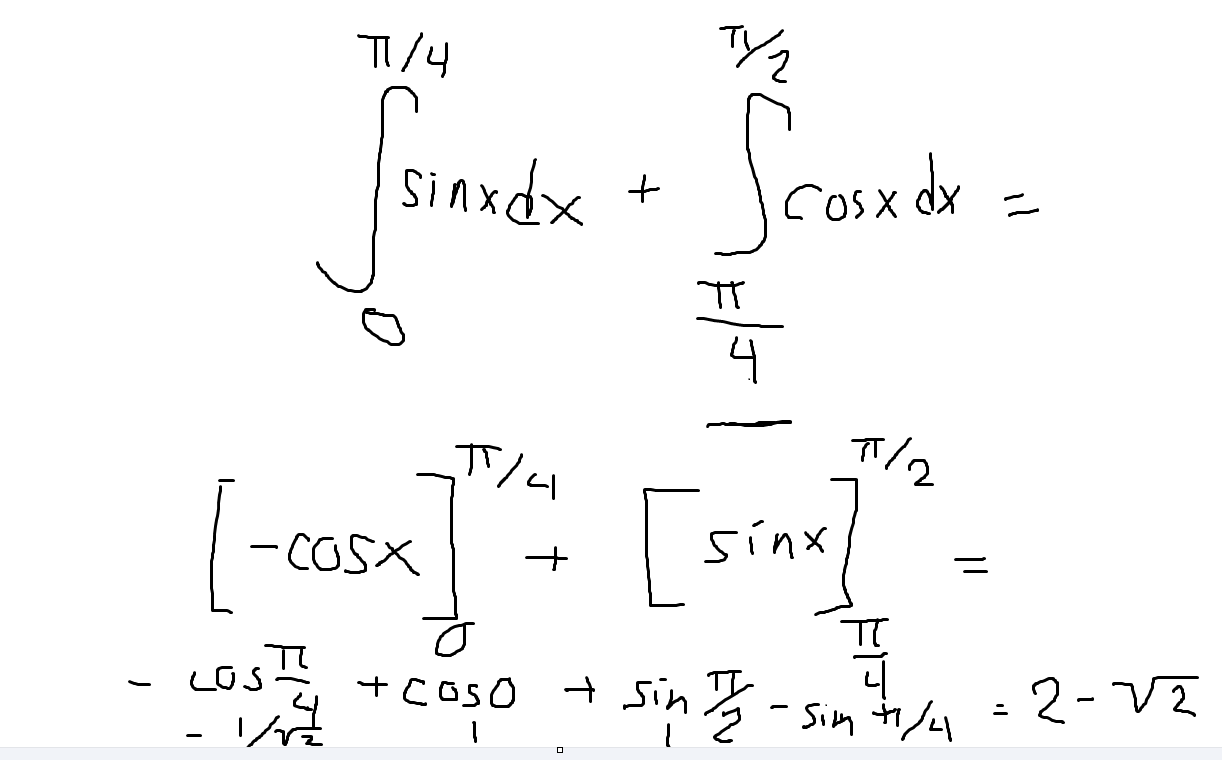 π/4 π/2
∫ sinxdx + ∫ cosx dx =
0 π/4
[-cosx]₀^π/4 + [sinx]_π/4^π/2 =
- cos π/4 + cos0 + sin π/2 - sin π/4 = 2 - √2
- 1/√2 1 1